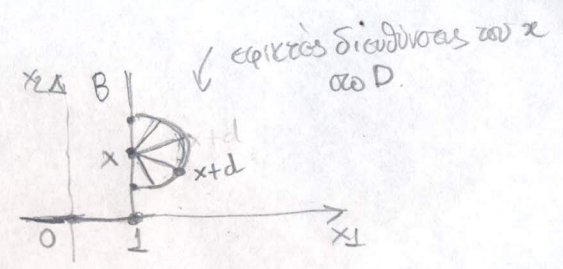 εφικτές διευθύνσεις του x
στο D
x2 B
x+d
x x+d
0 1 x1